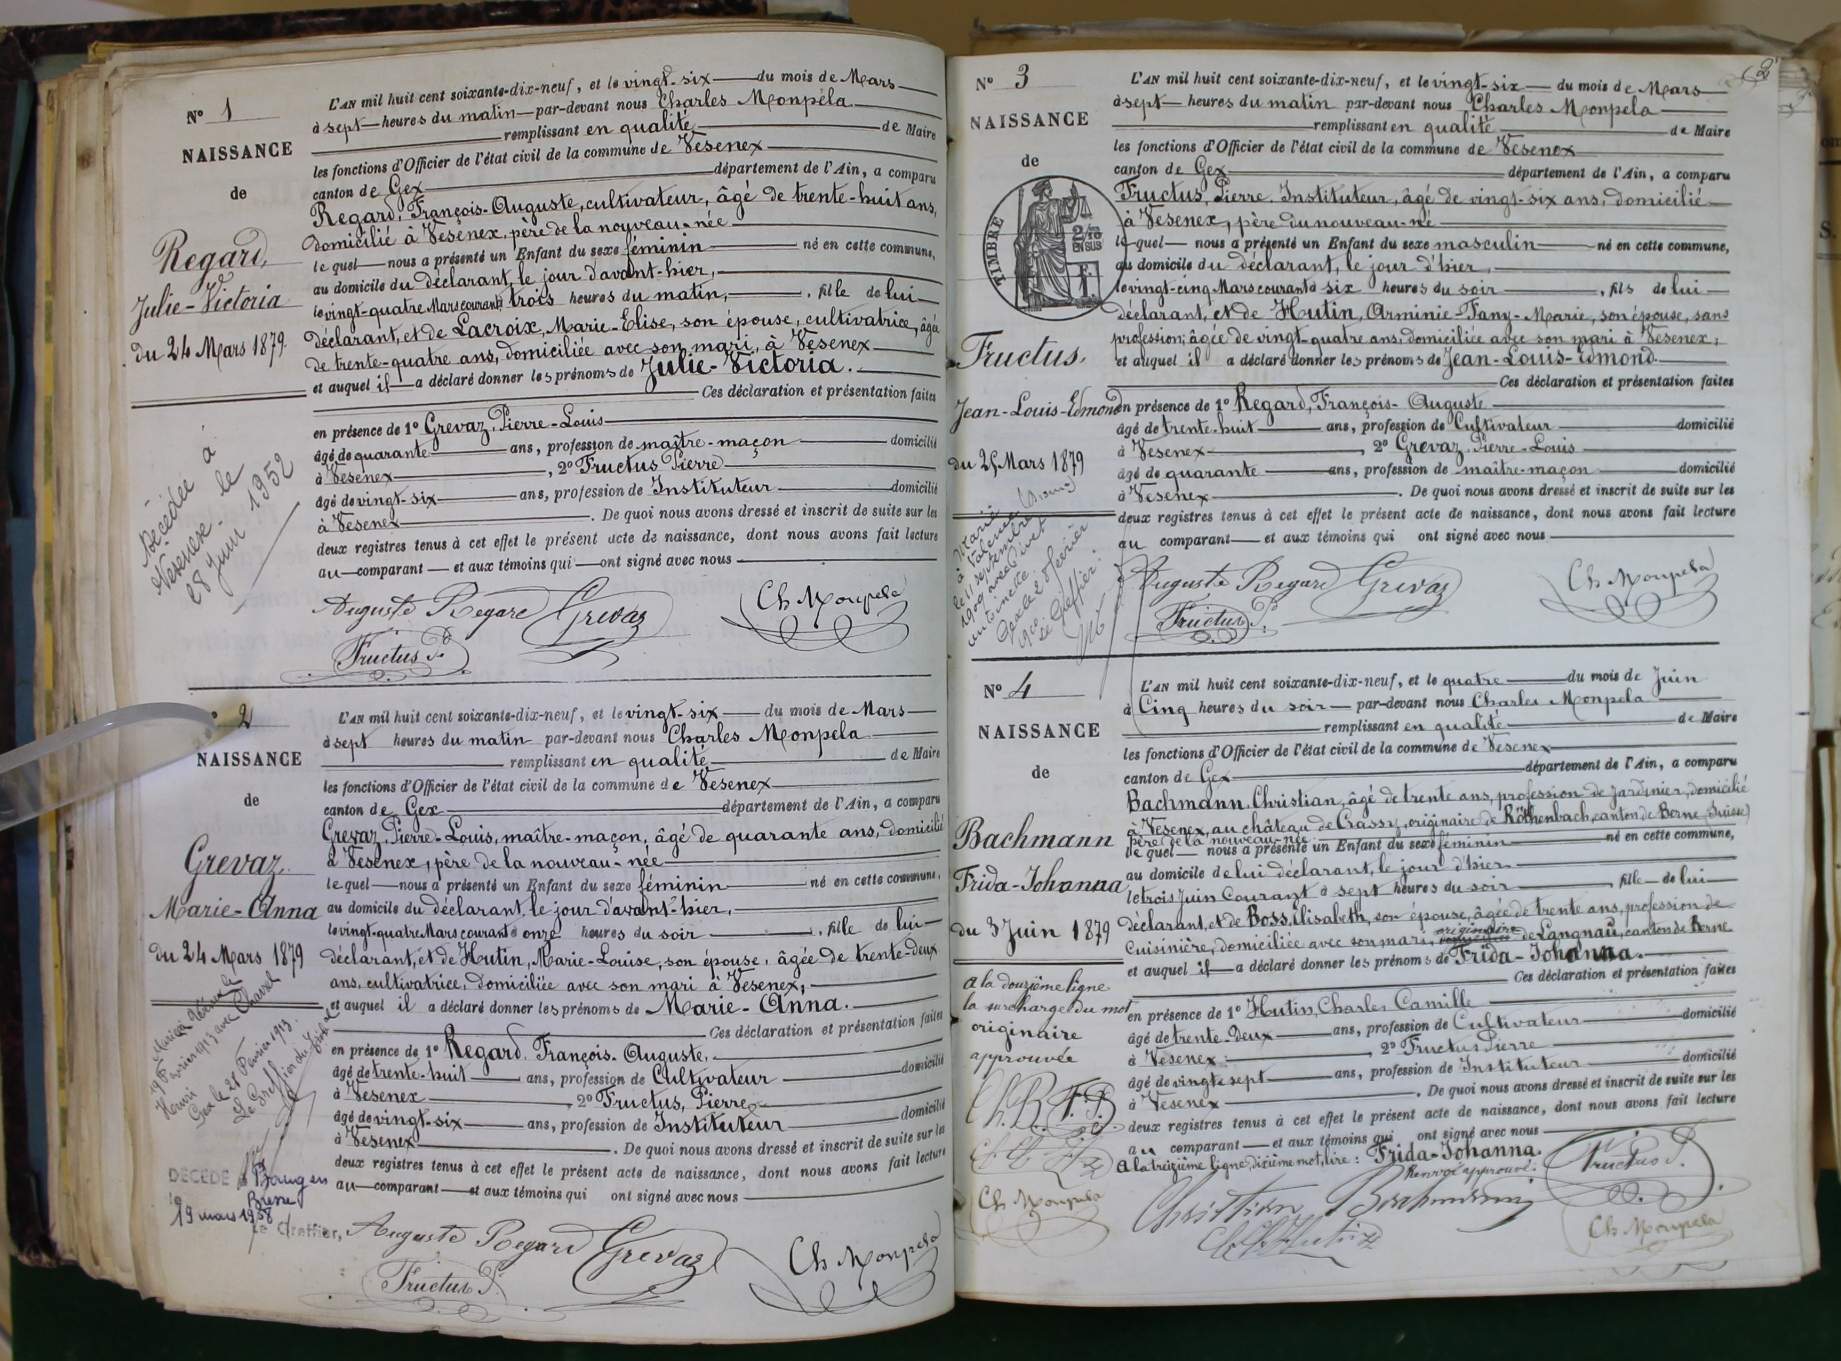 N° 1
NAISSANCE
de
Regard,
Julie-Victoria
du 24 Mars 1879
Décédée à
Vesenex le
28 juin 1952
L'AN mil huit cent soixante-dix-neuf, et le vingt-six du mois de Mars
à sept heures du matin par-devant nous Charles Monpela
remplissant en qualité de Maire
les fonctions d'Officier de l'état civil de la commune de Vesenex
canton de Gex département de l'Ain, a comparu
Regard, François-Auguste, cultivateur, âgé de trente-huit ans,
domicilié à Vesenex, père de la nouveau-née
le quel nous a présenté un Enfant du sexe féminin né en cette commune,
au domicile du déclarant, le jour d'avant-hier,
le vingt-quatre Mars courant à trois heures du matin, , fille de lui
déclarant, et de Lacroix, Marie-Elise, son épouse, cultivatrice, âgée
de trente-quatre ans, domiciliée avec son mari, à Vesenex
et auquel il a déclaré donner les prénoms de Julie-Victoria.
Ces déclaration et présentation faites
en présence de 1° Grevaz, Pierre-Louis
âgé de quarante ans, profession de maître-maçon domicilié
à Vesenex , 2° Fructus Pierre
âgé de vingt-six ans, profession de Instituteur domicilié
à Vesenex . De quoi nous avons dressé et inscrit de suite sur les
deux registres tenus à cet effet le présent acte de naissance, dont nous avons fait lecture
au comparant et aux témoins qui ont signé avec nous
Auguste Regard Grevaz Ch Monpela
Fructus P.
2
NAISSANCE
de
Grevaz
Marie-Anna
du 24 Mars 1879
Gex le 28 Février 1913.
Le Greffier
DÉCÉDÉ
19 mars 1958
Le Greffier,
L'AN mil huit cent soixante-dix-neuf, et le vingt-six du mois de Mars
à sept heures du matin par-devant nous Charles Monpela
remplissant en qualité de Maire
les fonctions d'Officier de l'état civil de la commune de Vesenex
canton de Gex département de l'Ain, a comparu
Grevaz, Pierre-Louis, maître-maçon, âgé de quarante ans, domicilié
à Vesenex, père de la nouveau-née
le quel nous a présenté un Enfant du sexe féminin né en cette commune,
au domicile du déclarant, le jour d'avant-hier,
le vingt-quatre Mars courant à onze heures du soir , fille de lui
déclarant, et de Hutin, Marie-Louise, son épouse, âgée de trente-deux
ans, cultivatrice, domiciliée avec son mari à Vesenex,
et auquel il a déclaré donner les prénoms de Marie-Anna.
Ces déclaration et présentation faites
en présence de 1° Regard, François-Auguste,
âgé de trente-huit ans, profession de Cultivateur domicilié
à Vesenex 2° Fructus, Pierre
âgé de vingt-six ans, profession de Instituteur domicilié
à Vesenex . De quoi nous avons dressé et inscrit de suite sur les
deux registres tenus à cet effet le présent acte de naissance, dont nous avons fait lecture
au comparant et aux témoins qui ont signé avec nous
Auguste Regard Grevaz Ch Monpela
Fructus P.
2
N° 3
NAISSANCE
de
TIMBRE
2/10
EN SUS
Fructus,
Jean-Louis-Edmond
du 25 Mars 1879
Marié
le 11 septembre
1909 avec
Gex le 28 février
1910.
Le Greffier.
L'AN mil huit cent soixante-dix-neuf, et le vingt-six du mois de Mars
à sept heures du matin par-devant nous Charles Monpela
remplissant en qualité de Maire
les fonctions d'Officier de l'état civil de la commune de Vesenex
canton de Gex département de l'Ain, a comparu
Fructus, Pierre, Instituteur, âgé de vingt-six ans, domicilié
à Vesenex, père du nouveau-né
le quel nous a présenté un Enfant du sexe masculin né en cette commune,
au domicile du déclarant, le jour d'hier,
le vingt-cinq Mars courant à six heures du soir , fils de lui
déclarant, et de Hutin, Arminie-Fany-Marie, son épouse, sans
profession, âgée de vingt-quatre ans, domiciliée avec son mari à Vesenex,
et auquel il a déclaré donner les prénoms de Jean-Louis-Edmond.
Ces déclaration et présentation faites
en présence de 1° Regard, François-Auguste
âgé de trente-huit ans, profession de Cultivateur domicilié
à Vesenex , 2° Grevaz, Pierre-Louis
âgé de quarante ans, profession de maître-maçon domicilié
à Vesenex . De quoi nous avons dressé et inscrit de suite sur les
deux registres tenus à cet effet le présent acte de naissance, dont nous avons fait lecture
au comparant et aux témoins qui ont signé avec nous
Auguste Regard Grevaz Ch Monpela
Fructus P.
N° 4
NAISSANCE
de
Bachmann
Frida-Johanna
du 3 Juin 1879
A la douzième ligne
la surcharge du mot
originaire
approuvée
Ch. B. F. P.
Ch Monpela
L'AN mil huit cent soixante-dix-neuf, et le quatre du mois de Juin
à Cinq heures du soir par-devant nous Charles Monpela
remplissant en qualité de Maire
les fonctions d'Officier de l'état civil de la commune de Vesenex
canton de Gex département de l'Ain, a comparu
Bachmann, Christian, âgé de trente ans, profession de Jardinier, domicilié
à Vesenex, au château de Crassy, originaire de Röthenbach, canton de Berne (Suisse)
père de la nouveau-née
le quel nous a présenté un Enfant du sexe féminin né en cette commune,
au domicile de lui déclarant, le jour d'hier
le trois Juin Courant à sept heures du soir , fille de lui
déclarant, et de Boss, Elisabeth, son épouse, âgée de trente ans, profession de
Cuisinière, domiciliée avec son mari, originaire de Langnaü, canton de Berne
et auquel il a déclaré donner les prénoms de Frida-Johanna.
Ces déclaration et présentation faites
en présence de 1° Hutin, Charles Camille
âgé de trente-deux ans, profession de Cultivateur domicilié
à Vesenex , 2° Fructus Pierre
âgé de vingt-sept ans, profession de Instituteur domicilié
à Vesenex . De quoi nous avons dressé et inscrit de suite sur les
deux registres tenus à cet effet le présent acte de naissance, dont nous avons fait lecture
au comparant et aux témoins qui ont signé avec nous
A la treizième ligne, dixième mot, lire : Frida-Johanna.
Renvoi approuvé. Fructus P.
Christian Bachmann
Ch. C. Hutin Ch Monpela